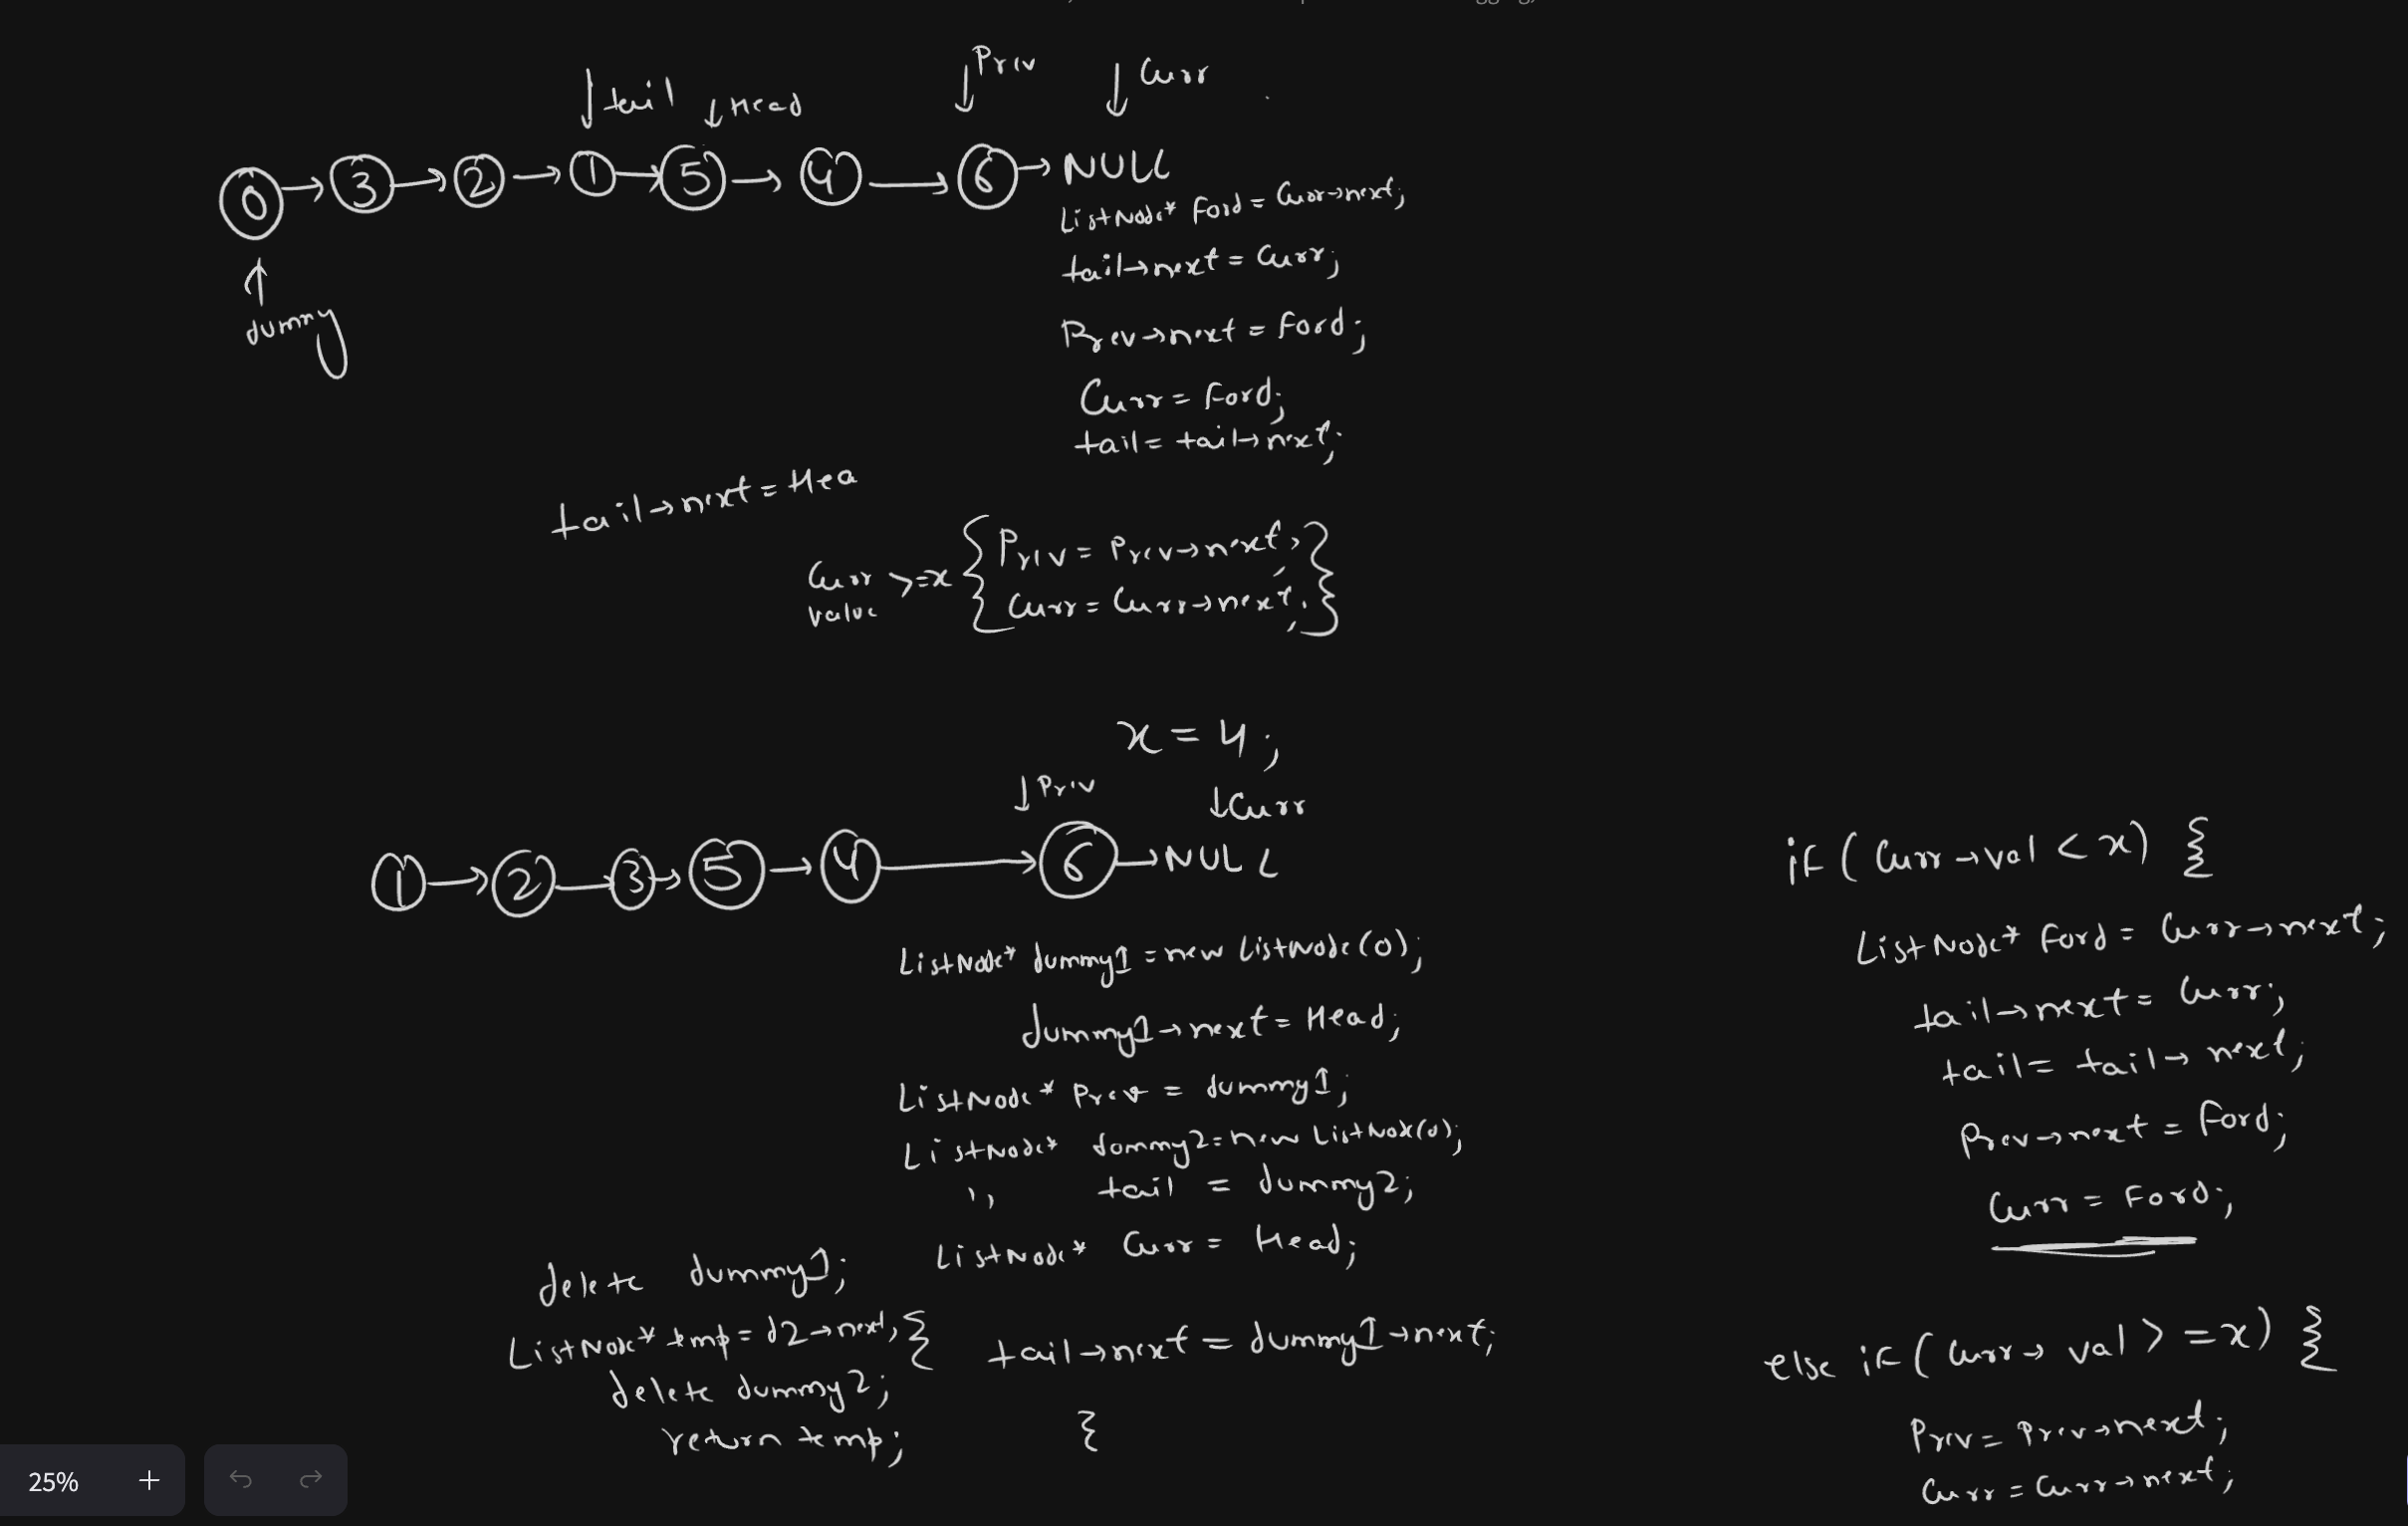 ↓ tail ↓ Head ↓ Prev ↓ Curr
0 → 3 → 2 → 1 → 5 → 4 → 6 → NULL
↑
dummy
ListNode* Ford = Curr→next;
tail→next = Curr;
Prev→next = Ford;
Curr = Ford;
tail = tail→next;
tail→next = Hea
Curr value >=x { Prev = Prev→next;
Curr = Curr→next; }
x = 4;
↓ Prev ↓ Curr
1 → 2 → 3 → 5 → 4 → 6 → NULL
ListNode* dummy1 = new ListNode(0);
dummy1→next = Head;
ListNode* Prev = dummy1;
ListNode* dommy2 = new ListNode(0);
,, tail = dummy2;
ListNode* Curr = Head;
{ tail→next = dummy1→next;
}
delete dummy1;
ListNode* temp = d2→next;
delete dummy2;
return temp;
if (Curr→val < x) {
ListNode* Ford = Curr→next;
tail→next = Curr;
tail = tail→next;
Prev→next = Ford;
Curr = Ford;
else if (Curr→val >=x) {
Prev = Prev→next;
Curr = Curr→next;
25% +